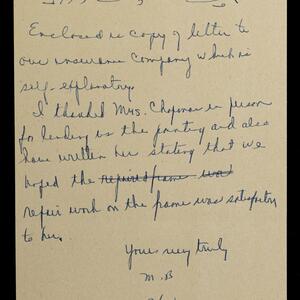 Enclosed is copy of letter to
our insurance company which is
self-explanatory.
I thanked Mrs. Chapman in person
for lending us the painting and also
have written her stating that we
hoped the repaired frame was
repair work on the frame was satisfactory
to her.
Yours very truly
M.B